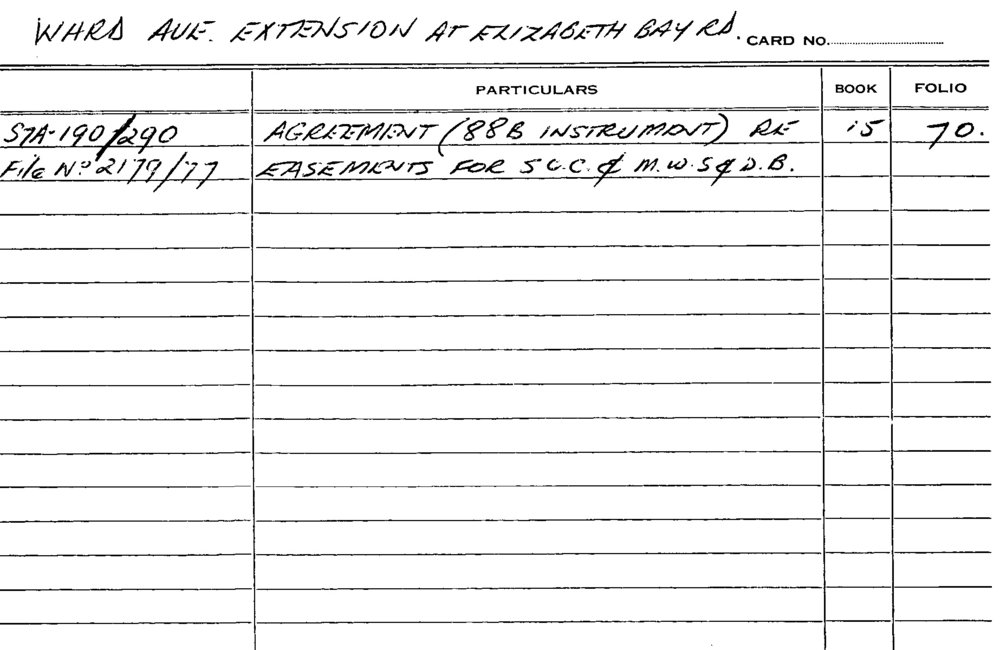 WARD AVE. EXTENSION AT ELIZABETH BAY RD. CARD NO.
PARTICULARS BOOK FOLIO
S7A-190/290 AGREEMENT (88B INSTRUMENT) RE 15 70.
File Nº 2179/77 EASEMENTS FOR S.C.C. & M.W.S & D.B.